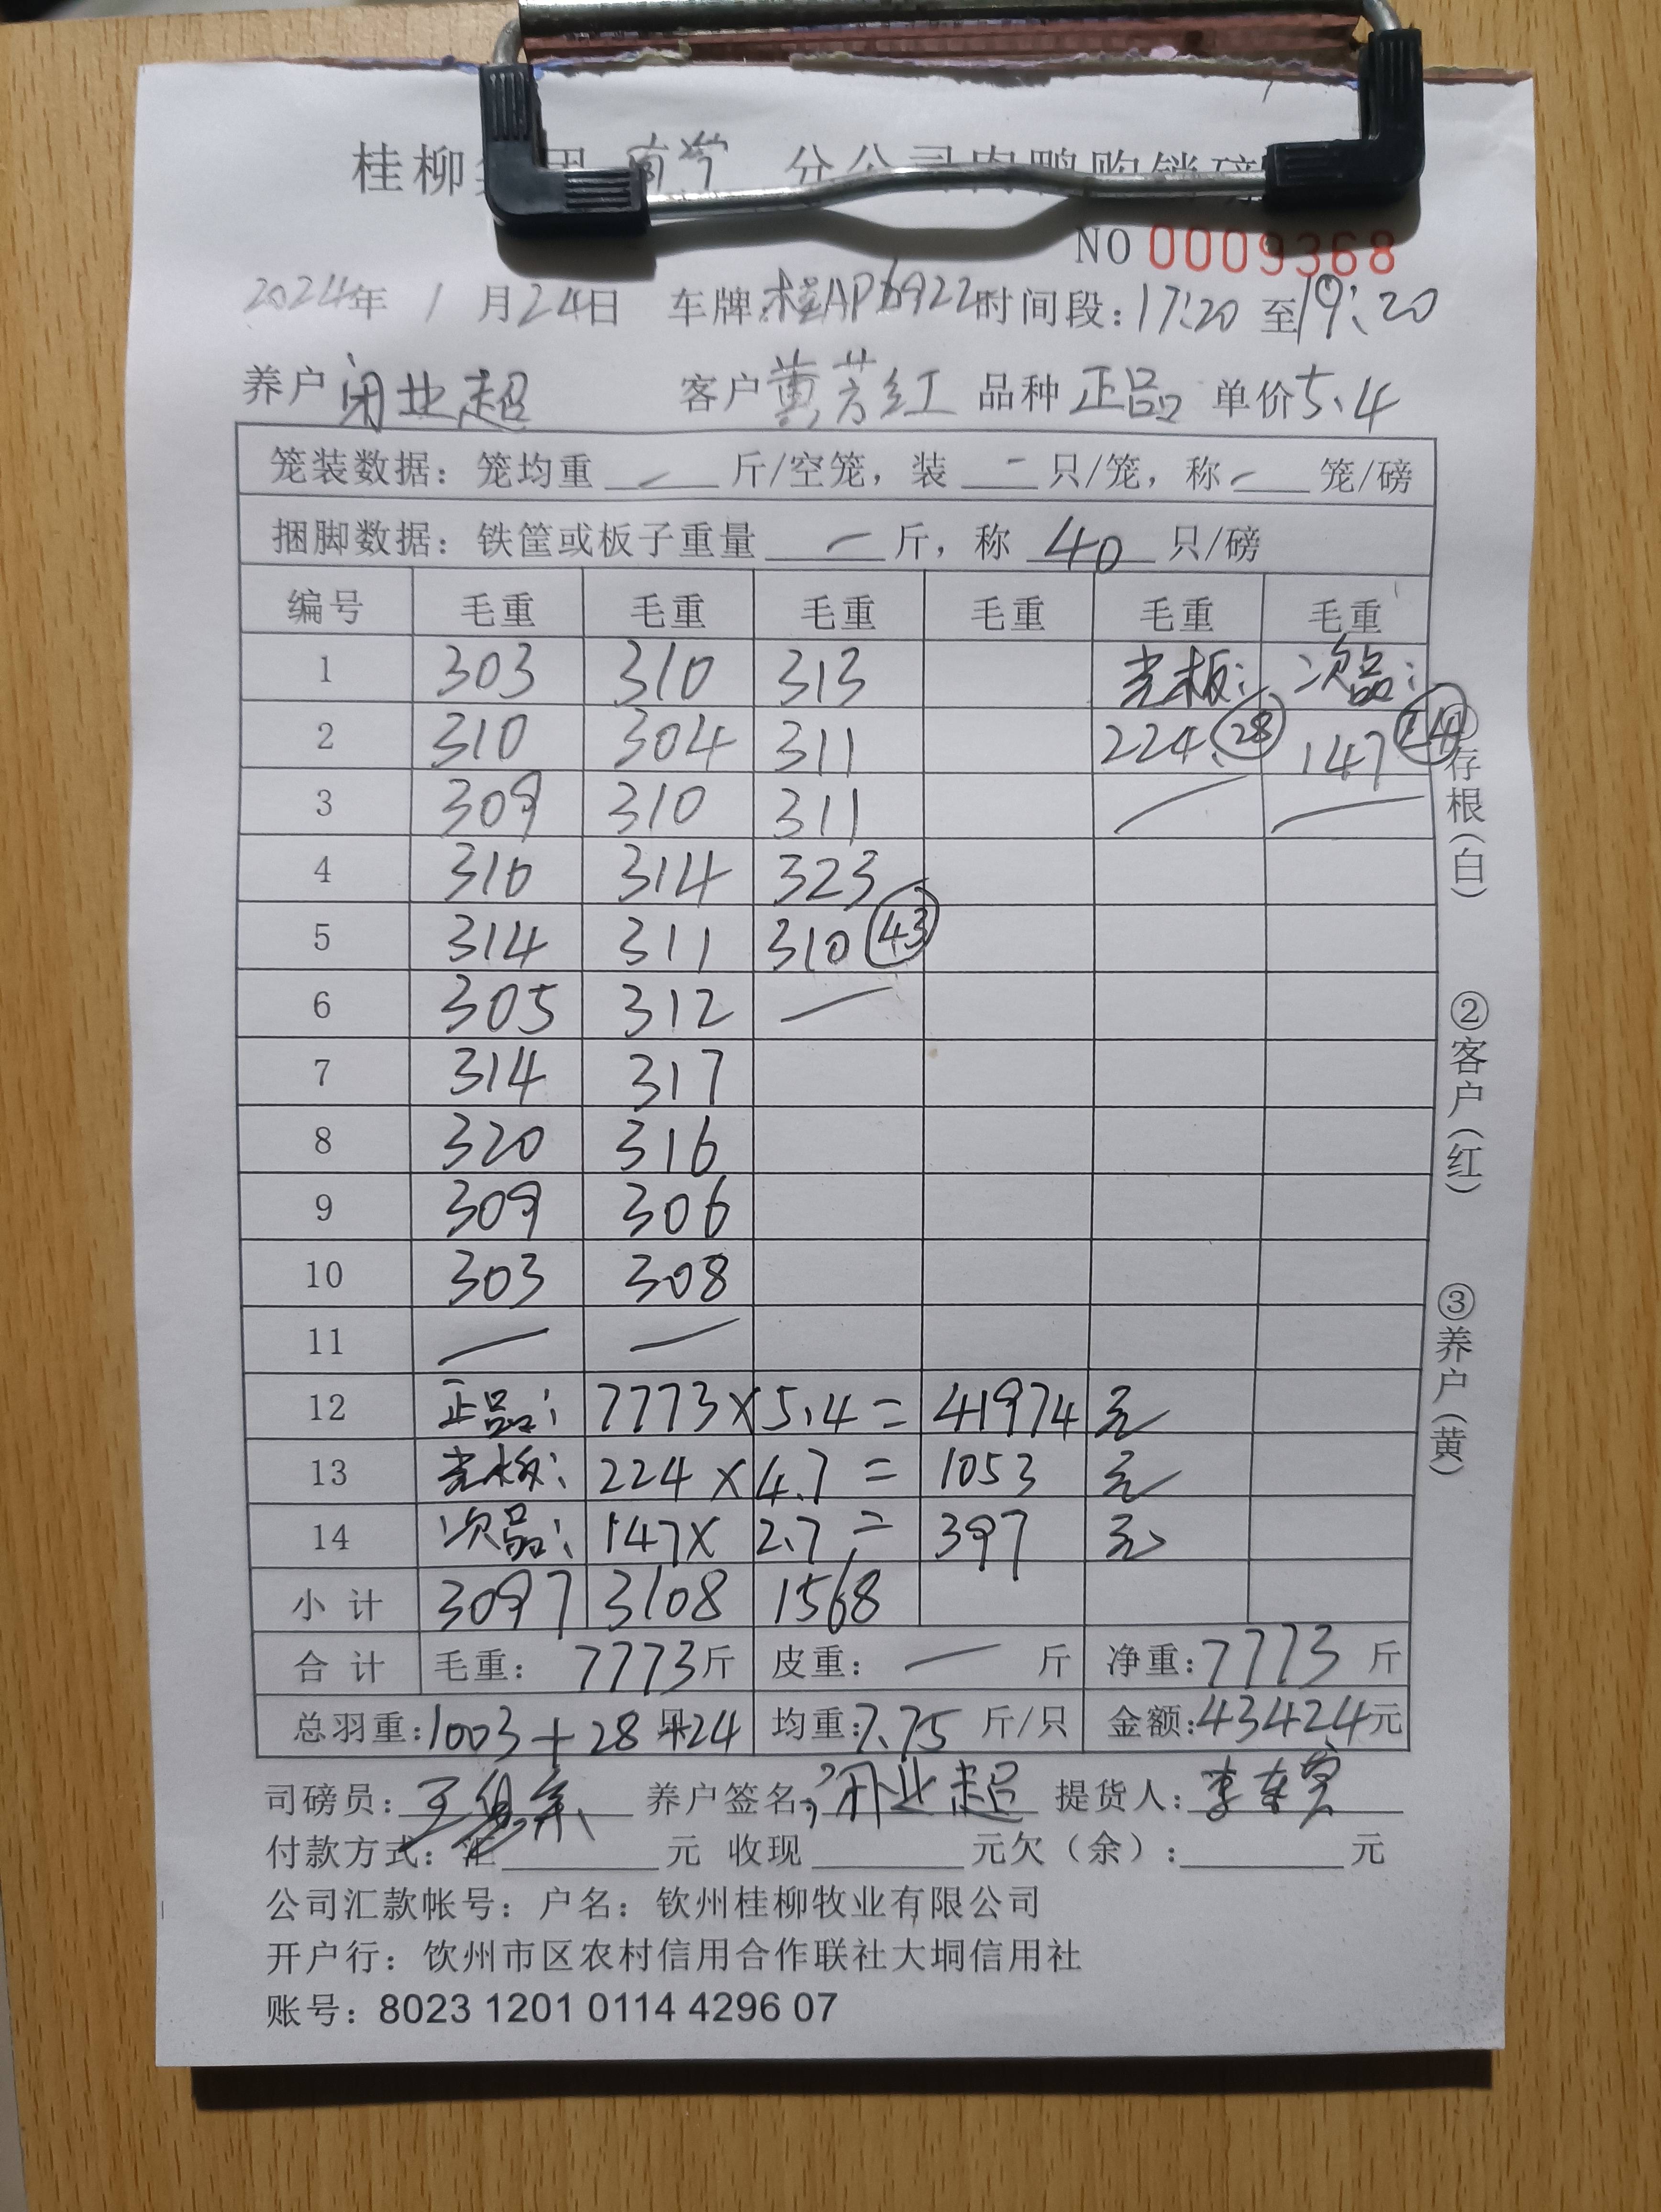 桂柳集团 南宁 分公司肉鸭购销磅
NO 0009368
2024年 1 月24日 车牌:桂AP6922时间段:17:20 至19:20
养户 闭业超 客户 黄芳红 品种 正品 单价5.4
笼装数据: 笼均重 — 斤/空笼, 装 — 只/笼, 称 — 笼/磅
捆脚数据: 铁筐或板子重量 — 斤, 称 40 只/磅
编号 毛重 毛重 毛重 毛重 毛重 毛重
1 303 310 313 光板: 次品:
2 310 304 311 224 28 147 24
3 309 310 311 — —
4 310 314 323
5 314 311 310 43
6 305 312 —
7 314 317
8 320 316
9 309 306
10 303 308
11 — —
12 正品: 7773×5.4= 41974 元
13 光板: 224×4.7= 1053 元
14 次品: 147×2.7= 397 元
小 计 3097 3108 1568
合 计 毛重: 7773斤 皮重: — 斤 净重:7773 斤
总羽重:1003+28+24 均重:7.75 斤/只 金额:43424元
司磅员: 养户签名: 闭业超 提货人:
付款方式: 汇 元 收现 元欠(余): 元
公司汇款帐号: 户名: 钦州桂柳牧业有限公司
开户行: 钦州市区农村信用合作联社大垌信用社
账号: 8023 1201 0114 4296 07
存根(白)
②客户(红)
③养户(黄)